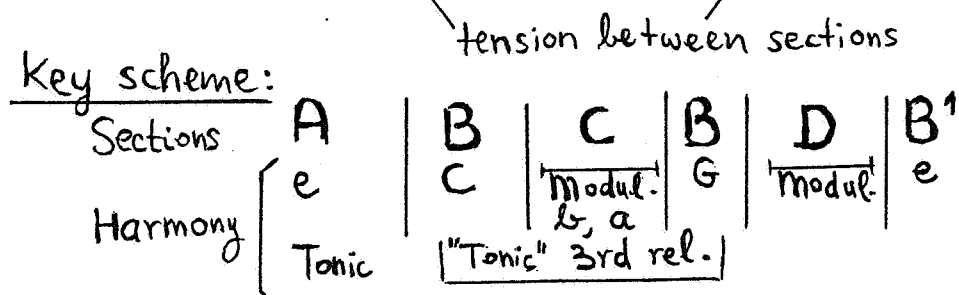 tension between sections
Key scheme:
Sections A | B | C | B | D | B¹
Harmony e | C | Modul. b, a | G | Modul. | e
Tonic "Tonic" 3rd rel.